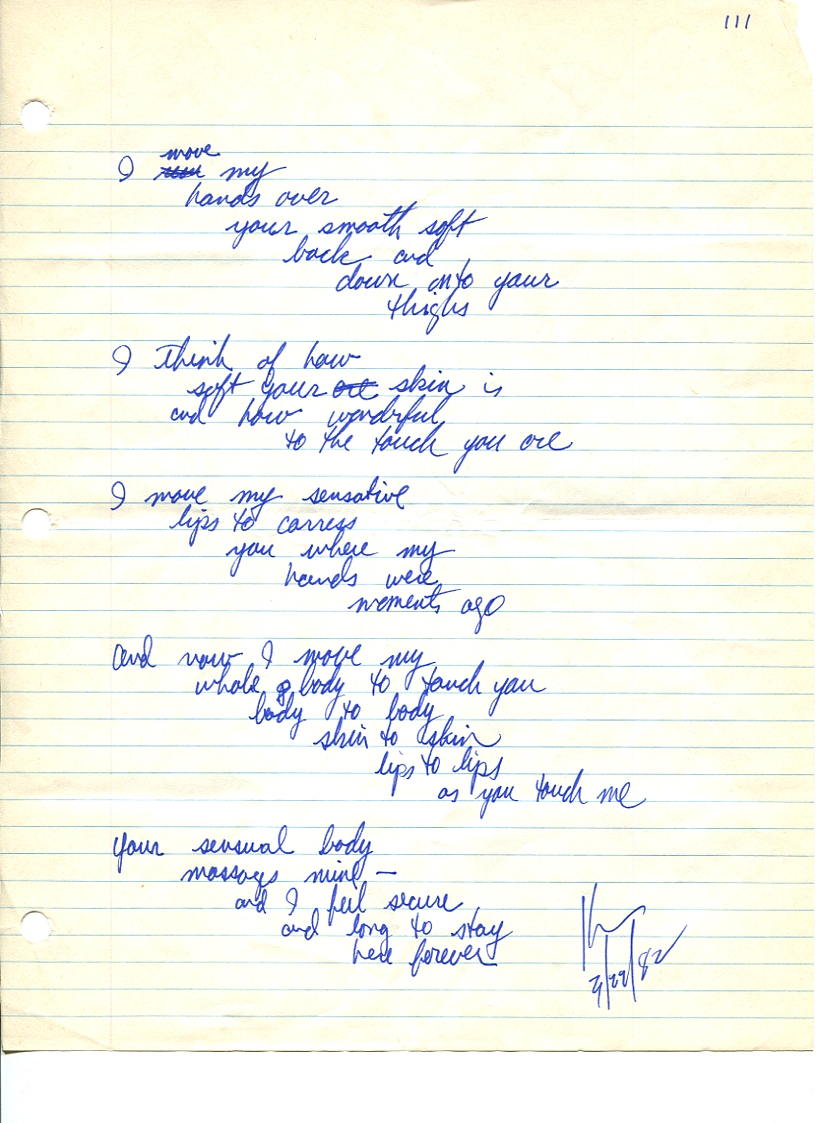 111
move
I my
hands over
your smooth soft
back and
down onto your
thighs
I think of how
soft your are skin is
and how wonderful
to the touch you are
I move my sensative
lips to carress
you where my
hands were
moments ago
and now I move my
whole body to touch you
body to body
skin to skin
lips to lips
as you touch me
Your sensual body
massags mine —
and I feel secure
and long to stay
here forever
/29/82